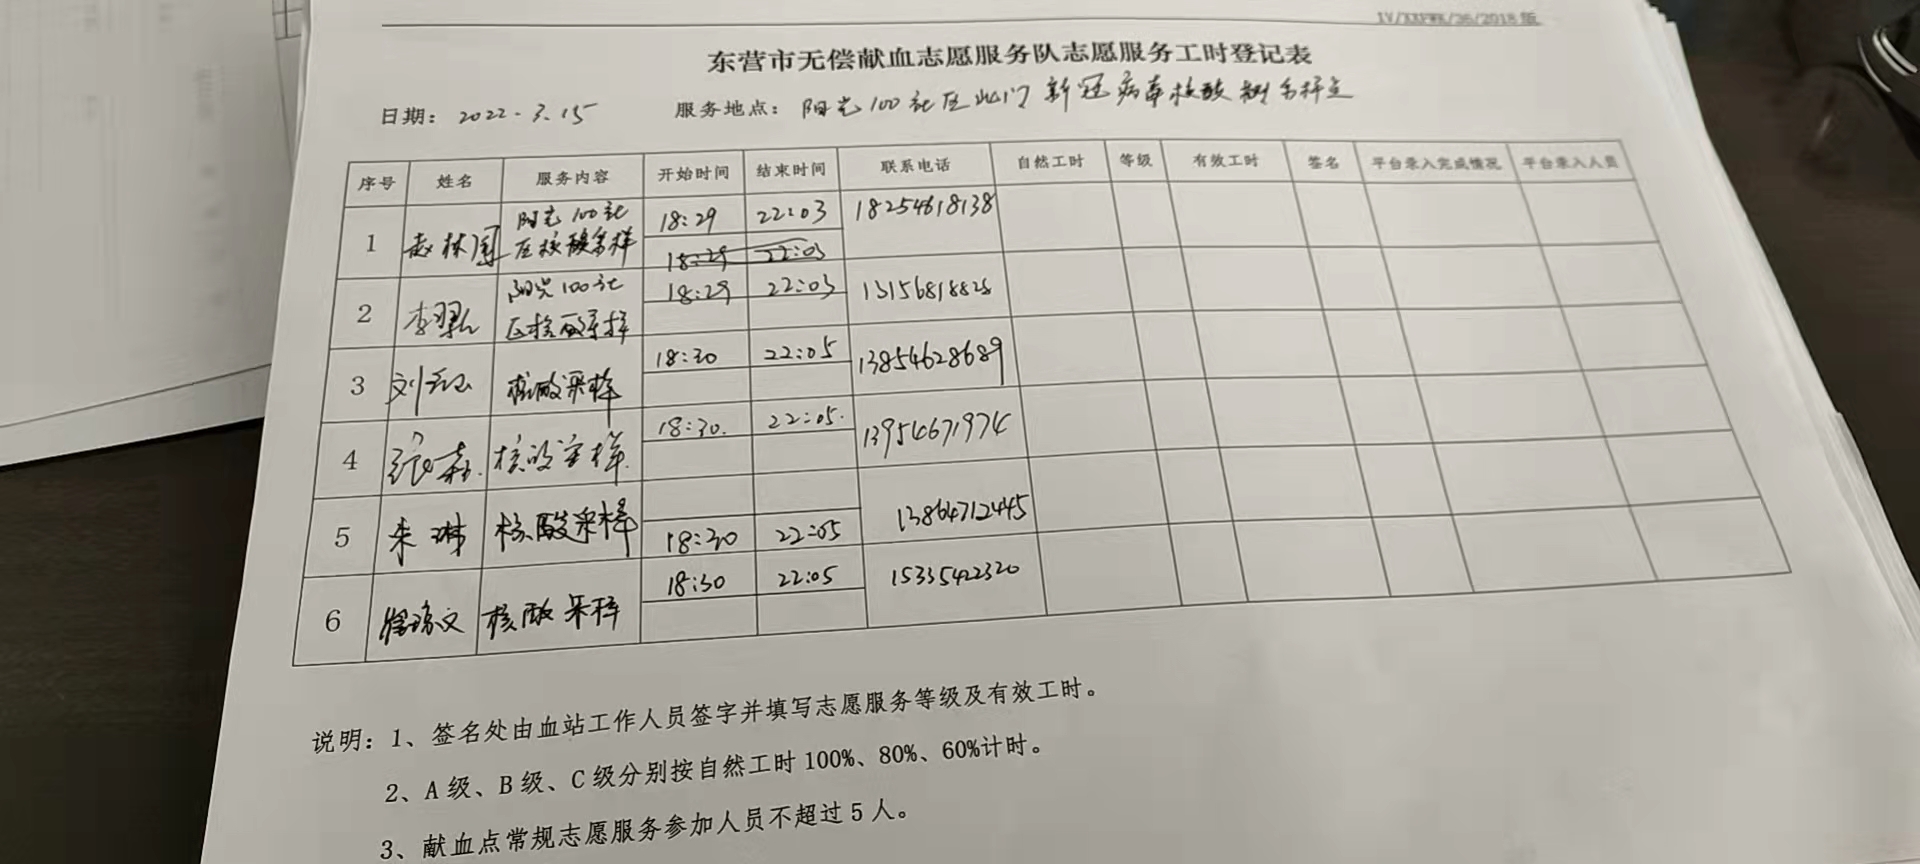 IV/XXFWK/36/2018版
东营市无偿献血志愿服务队志愿服务工时登记表
日期: 2022.3.15 服务地点: 阳光100社区北门新冠病毒核酸测采样点
序号 姓名 服务内容 开始时间 结束时间 联系电话 自然工时 等级 有效工时 签名 平台录入完成情况 平台录入人员
1 赵林国 阳光100社 18:29 22:03 18254618138
区核酸采样 18:29 22:03
2 李 阳光100社 18:29 22:03 13156818828
区核酸采样
3 刘 核酸采样 18:30 22:05 13854628689
4 张 核酸采样 18:30. 22:05. 13954671974
5 朱琳 核酸采样 18:30 22:05 13864712445
6 文 核酸采样 18:30 22:05 15335422320
说明: 1、签名处由血站工作人员签字并填写志愿服务等级及有效工时。
2、A级、B级、C级分别按自然工时100%、80%、60%计时。
3、献血点常规志愿服务参加人员不超过5人。